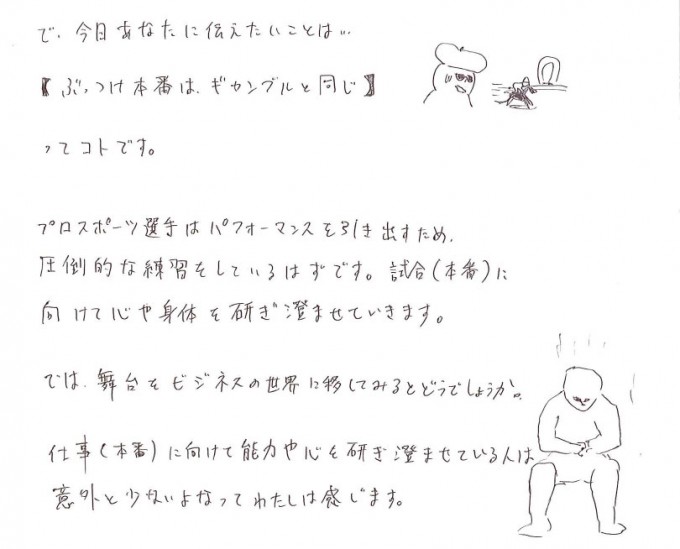 で、今日あなたに伝えたいことは…
【ぶっつけ本番は、ギャンブルと同じ】
ってコトです。
プロスポーツ選手はパフォーマンスを引き出すため、
圧倒的な練習をしているはずです。試合(本番)に
向けて心や身体を研ぎ澄ませていきます。
では、舞台をビジネスの世界に移してみるとどうでしょうか。
仕事(本番)に向けて能力や心を研ぎ澄ませている人は
意外と少ないよなってわたしは感じます。